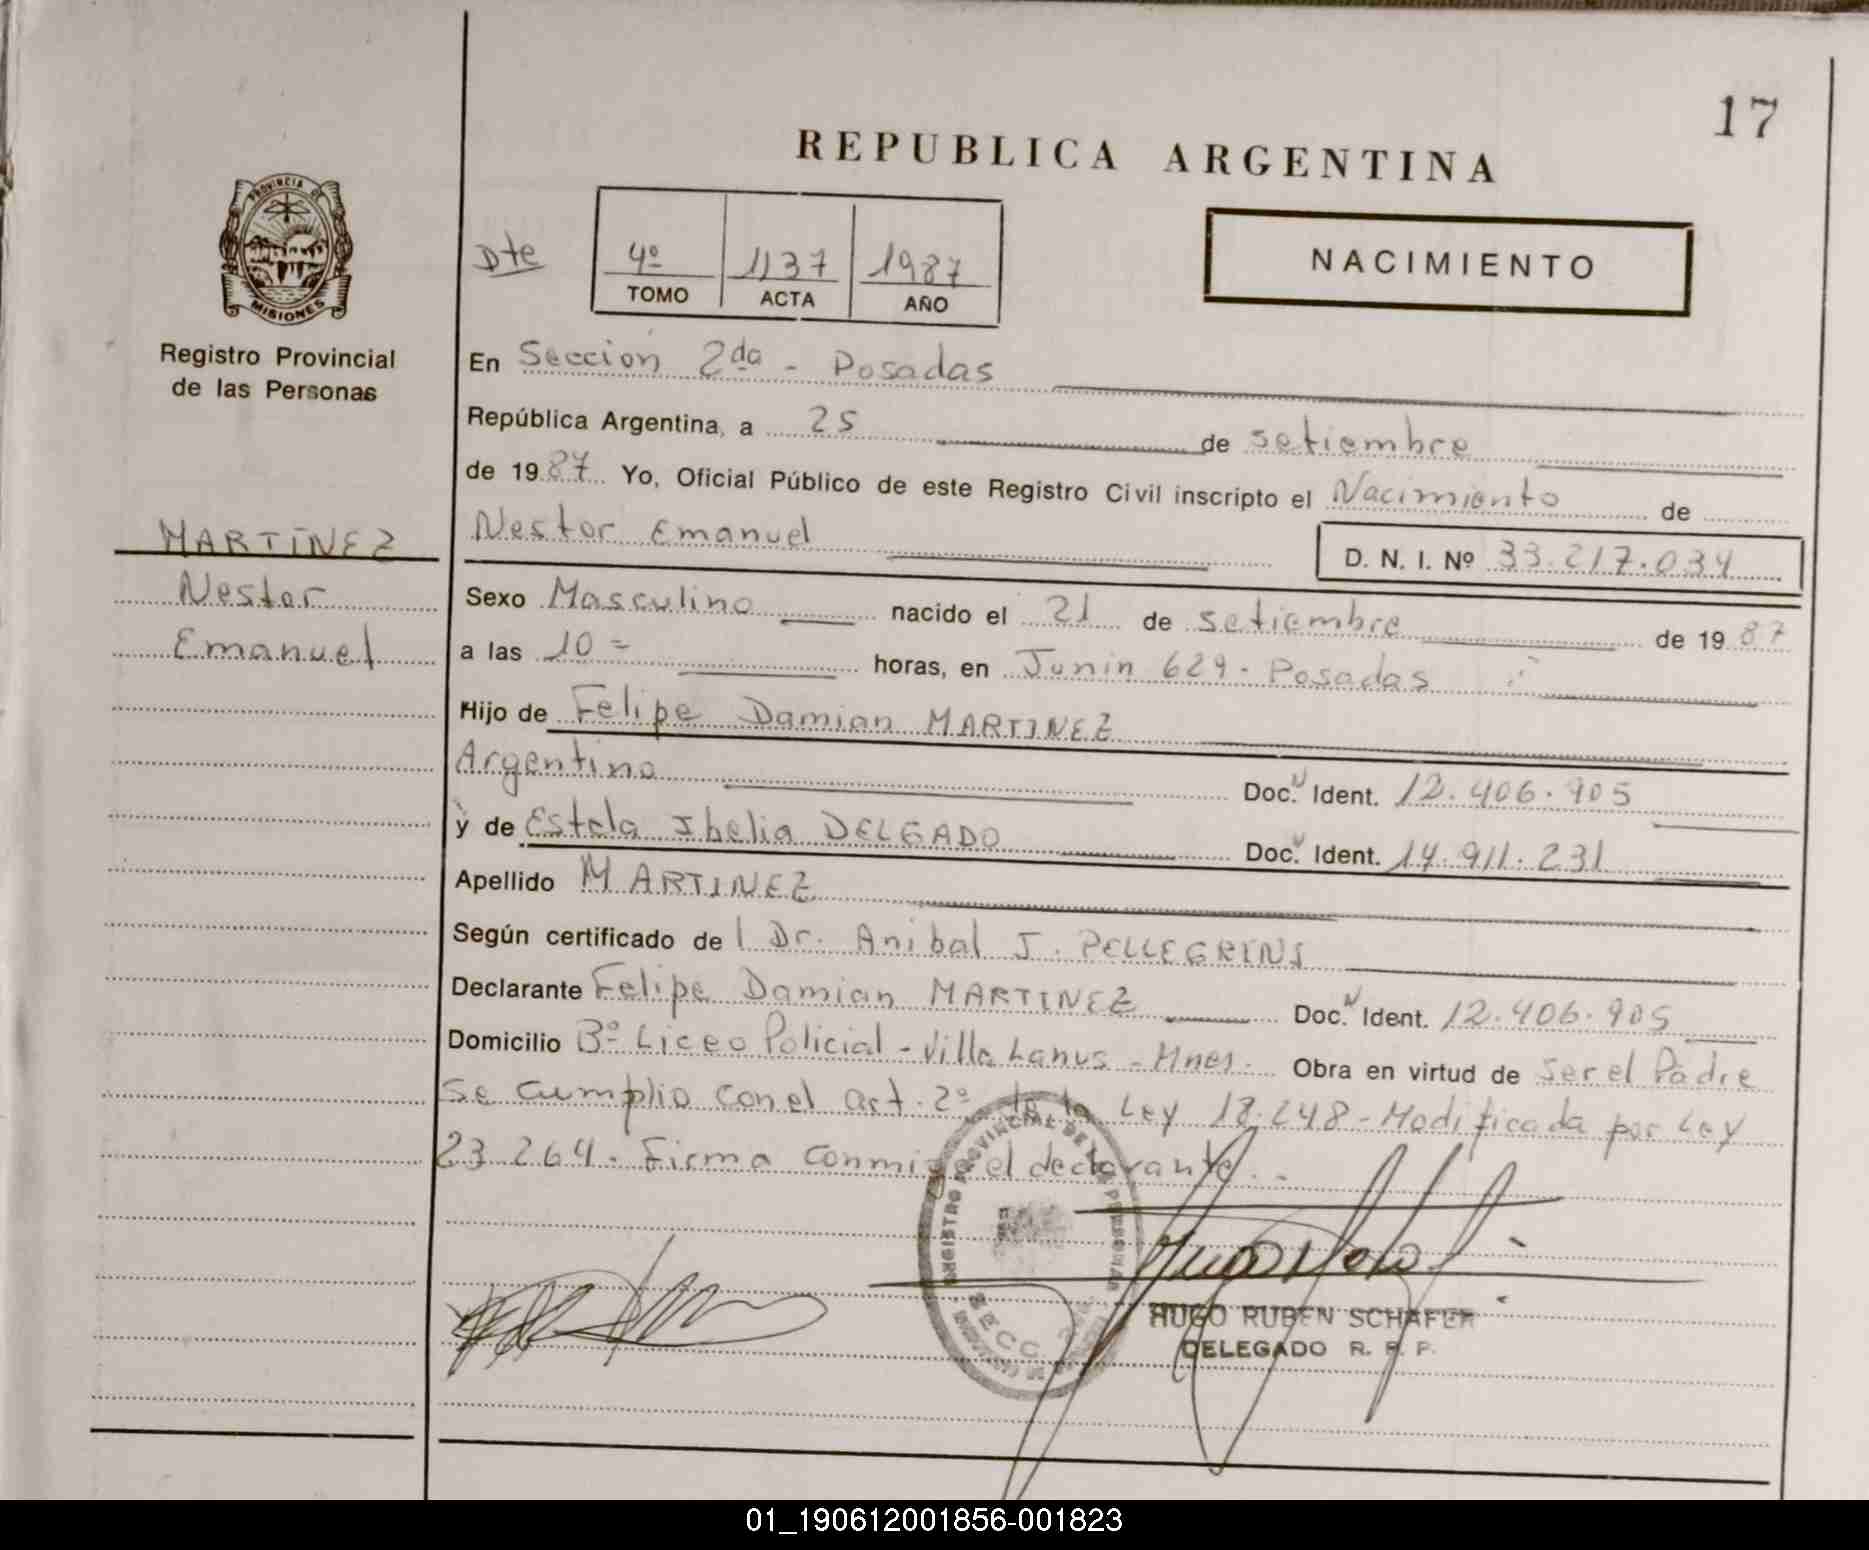 17
REPUBLICA ARGENTINA
PROVINCIA DE
MISIONES
Registro Provincial
de las Personas
Dte
4º 1137 1987
TOMO ACTA AÑO
NACIMIENTO
En Seccion 2da - Posadas
República Argentina, a 25 de setiembre
de 1987 Yo, Oficial Público de este Registro Civil inscripto el Nacimiento de
MARTINEZ
Nestor
Emanuel
Nestor Emanuel D. N. I. Nº 33.217.034
Sexo Masculino nacido el 21 de setiembre de 1987
a las 10= horas, en Junin 629 - Posadas
Hijo de Felipe Damian MARTINEZ
Argentino Doc. Ident. 12.406.905
y de Estela Ibelia DELGADO Doc. Ident. 14.911.231
Apellido MARTINEZ
Según certificado de l Dr. Anibal J. PELLEGRINI
Declarante Felipe Damian MARTINEZ Doc. Ident. 12.406.905
Domicilio Bº Liceo Policial - Villa Lanus - Mnes. Obra en virtud de ser el Padre
se cumplio con el art. 2º de la Ley 18.248 - Modificada por Ley
23 264 - Firma conmigo el declarante.-
REGISTRO PROVINCIAL DE LAS PERSONAS
HUGO RUBEN SCHAFER
DELEGADO R. P. P.
01_190612001856-001823